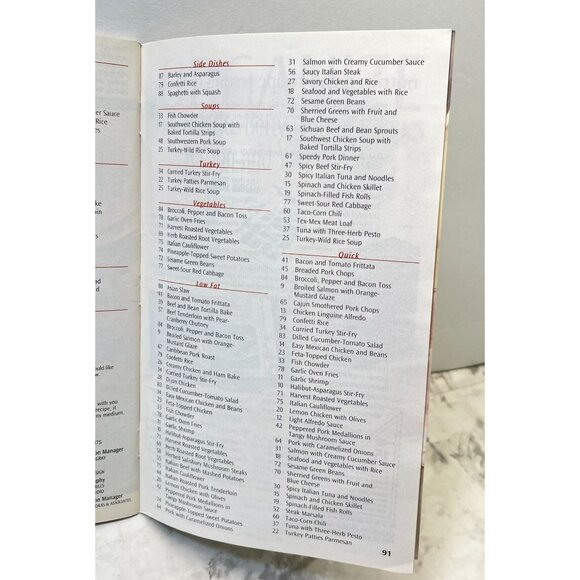 Side Dishes
87 Barley and Asparagus
79 Confetti Rice
88 Spaghetti with Squash
Soups
33 Fish Chowder
17 Southwest Chicken Soup with
Baked Tortilla Strips
48 Southwestern Pork Soup
25 Turkey-Wild Rice Soup
Turkey
34 Curried Turkey Stir-Fry
22 Turkey Patties Parmesan
25 Turkey-Wild Rice Soup
Vegetables
84 Broccoli, Pepper and Bacon Toss
78 Garlic Oven Fries
71 Harvest Roasted Vegetables
69 Herb Roasted Root Vegetables
75 Italian Cauliflower
74 Pineapple-Topped Sweet Potatoes
72 Sesame Green Beans
77 Sweet-Sour Red Cabbage
Low Fat
80 Asian Slaw
41 Bacon and Tomato Frittata
39 Beef and Bean Tortilla Bake
37 Beef Tenderloin with Pear-
Cranberry Chutney
84 Broccoli, Pepper and Bacon Toss
9 Broiled Salmon with Orange-
Mustard Glaze
47 Caribbean Pork Roast
79 Confetti Rice
26 Creamy Chicken and Ham Bake
34 Curried Turkey Stir-Fry
28 Dijon Chicken
83 Dilled Cucumber-Tomato Salad
14 Easy Mexican Chicken and Beans
23 Feta-Topped Chicken
33 Fish Chowder
78 Garlic Oven Fries
11 Garlic Shrimp
Halibut-Asparagus Stir-Fry
71 Harvest Roasted Vegetables
Herb Roasted Root Vegetables
Herbed Salisbury Mushroom Steaks
Italian Beef with Mashed Potatoes
Italian Cauliflower
Italian Roasted Pork Tenderloin
Lemon Chicken with Olives
42 Peppered Pork Medallions in
Tangy Mushroom Sauce
74 Pineapple-Topped Sweet Potatoes
64 Pork with Caramelized Onions
31 Salmon with Creamy Cucumber Sauce
56 Saucy Italian Steak
27 Savory Chicken and Rice
18 Seafood and Vegetables with Rice
72 Sesame Green Beans
70 Sherried Greens with Fruit and
Blue Cheese
63 Sichuan Beef and Bean Sprouts
17 Southwest Chicken Soup with
Baked Tortilla Strips
61 Speedy Pork Dinner
47 Spicy Beef Stir-Fry
30 Spicy Italian Tuna and Noodles
15 Spinach and Chicken Skillet
19 Spinach-Filled Fish Rolls
77 Sweet-Sour Red Cabbage
60 Taco-Corn Chili
53 Tex-Mex Meat Loaf
37 Tuna with Three-Herb Pesto
25 Turkey-Wild Rice Soup
Quick
41 Bacon and Tomato Frittata
45 Breaded Pork Chops
84 Broccoli, Pepper and Bacon Toss
9 Broiled Salmon with Orange-
Mustard Glaze
65 Cajun Smothered Pork Chops
13 Chicken Linguine Alfredo
79 Confetti Rice
34 Curried Turkey Stir-Fry
83 Dilled Cucumber-Tomato Salad
14 Easy Mexican Chicken and Beans
23 Feta-Topped Chicken
33 Fish Chowder
78 Garlic Oven Fries
11 Garlic Shrimp
10 Halibut-Asparagus Stir-Fry
71 Harvest Roasted Vegetables
75 Italian Cauliflower
20 Lemon Chicken with Olives
12 Light Alfredo Sauce
42 Peppered Pork Medallions in
Tangy Mushroom Sauce
64 Pork with Caramelized Onions
31 Salmon with Creamy Cucumber Sauce
18 Seafood and Vegetables with Rice
72 Sesame Green Beans
70 Sherried Greens with Fruit and
Blue Cheese
30 Spicy Italian Tuna and Noodles
15 Spinach and Chicken Skillet
19 Spinach-Filled Fish Rolls
52 Steak Marsala
60 Taco-Corn Chili
37 Tuna with Three-Herb Pesto
22 Turkey Patties Parmesan
91